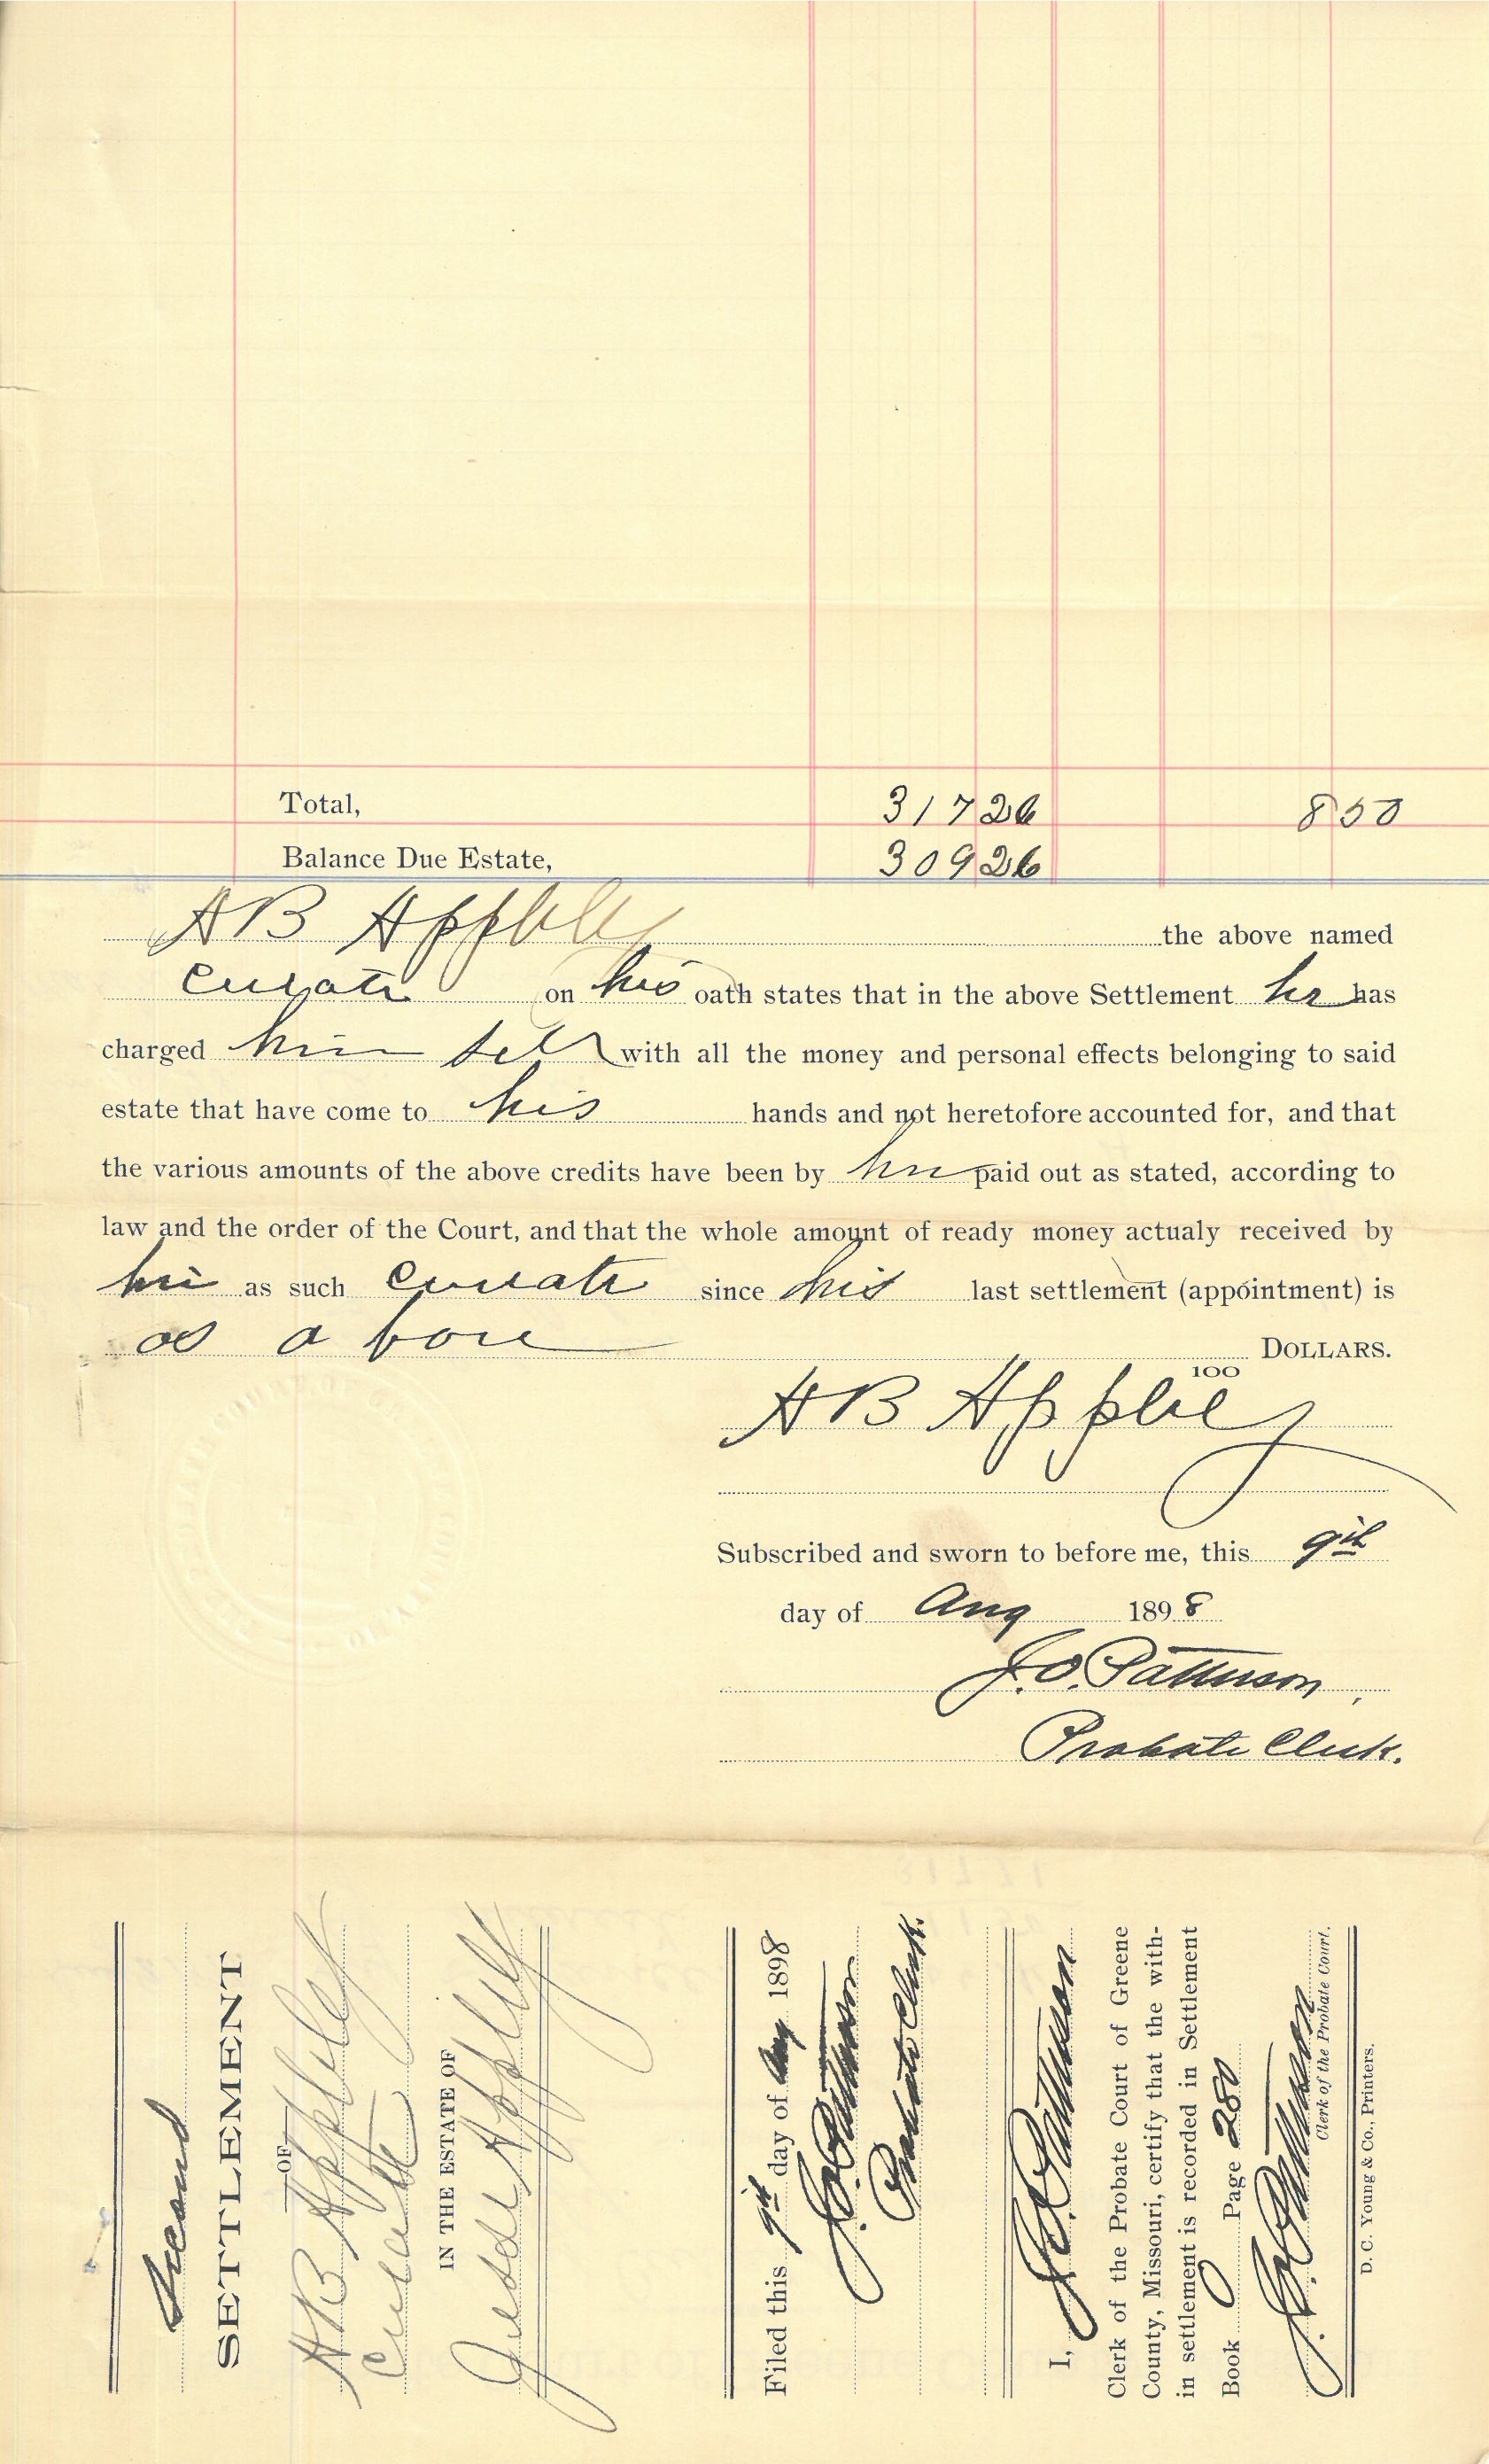 Total, 317 26 8 50
Balance Due Estate, 309 26
A B Appleby the above named
Curator on his oath states that in the above Settlement he has
charged him self with all the money and personal effects belonging to said
estate that have come to his hands and not heretofore accounted for, and that
the various amounts of the above credits have been by him paid out as stated, according to
law and the order of the Court, and that the whole amount of ready money actualy received by
him as such Curator since his last settlement (appointment) is
as above DOLLARS.
100
A B Appleby
Subscribed and sworn to before me, this 9th
day of Aug 1898
J. O. Patterson,
Probate Clerk.
Second
SETTLEMENT
OF
A B Appleby
Curator
IN THE ESTATE OF
Jesse Appleby
Filed this 9th day of Aug 1898
J. O. Patterson
Probate Clerk.
I, J. O. Patterson
Clerk of the Probate Court of Greene
County, Missouri, certify that the with-
in settlement is recorded in Settlement
Book O Page 280
J. O. Patterson
Clerk of the Probate Court.
D. C. Young & Co., Printers.